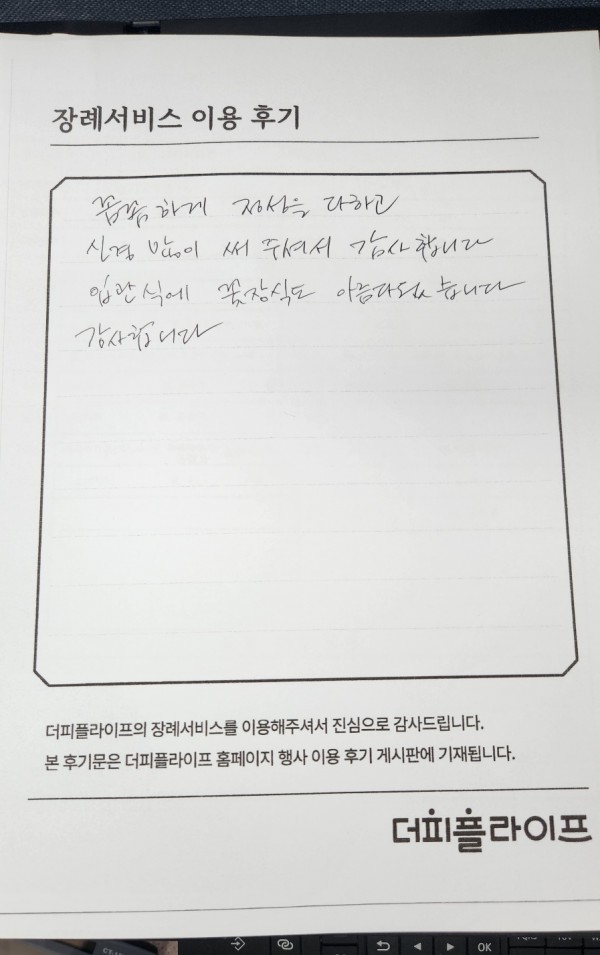 장례서비스 이용 후기
꼼꼼하게 정성을 다하고
신경 많이 써 주셔서 감사합니다
입관식에 꽃장식도 아름다웠습니다
감사합니다
더피플라이프의 장례서비스를 이용해주셔서 진심으로 감사드립니다.
본 후기문은 더피플라이프 홈페이지 행사 이용 후기 게시판에 기재됩니다.
더피플라이프
OK